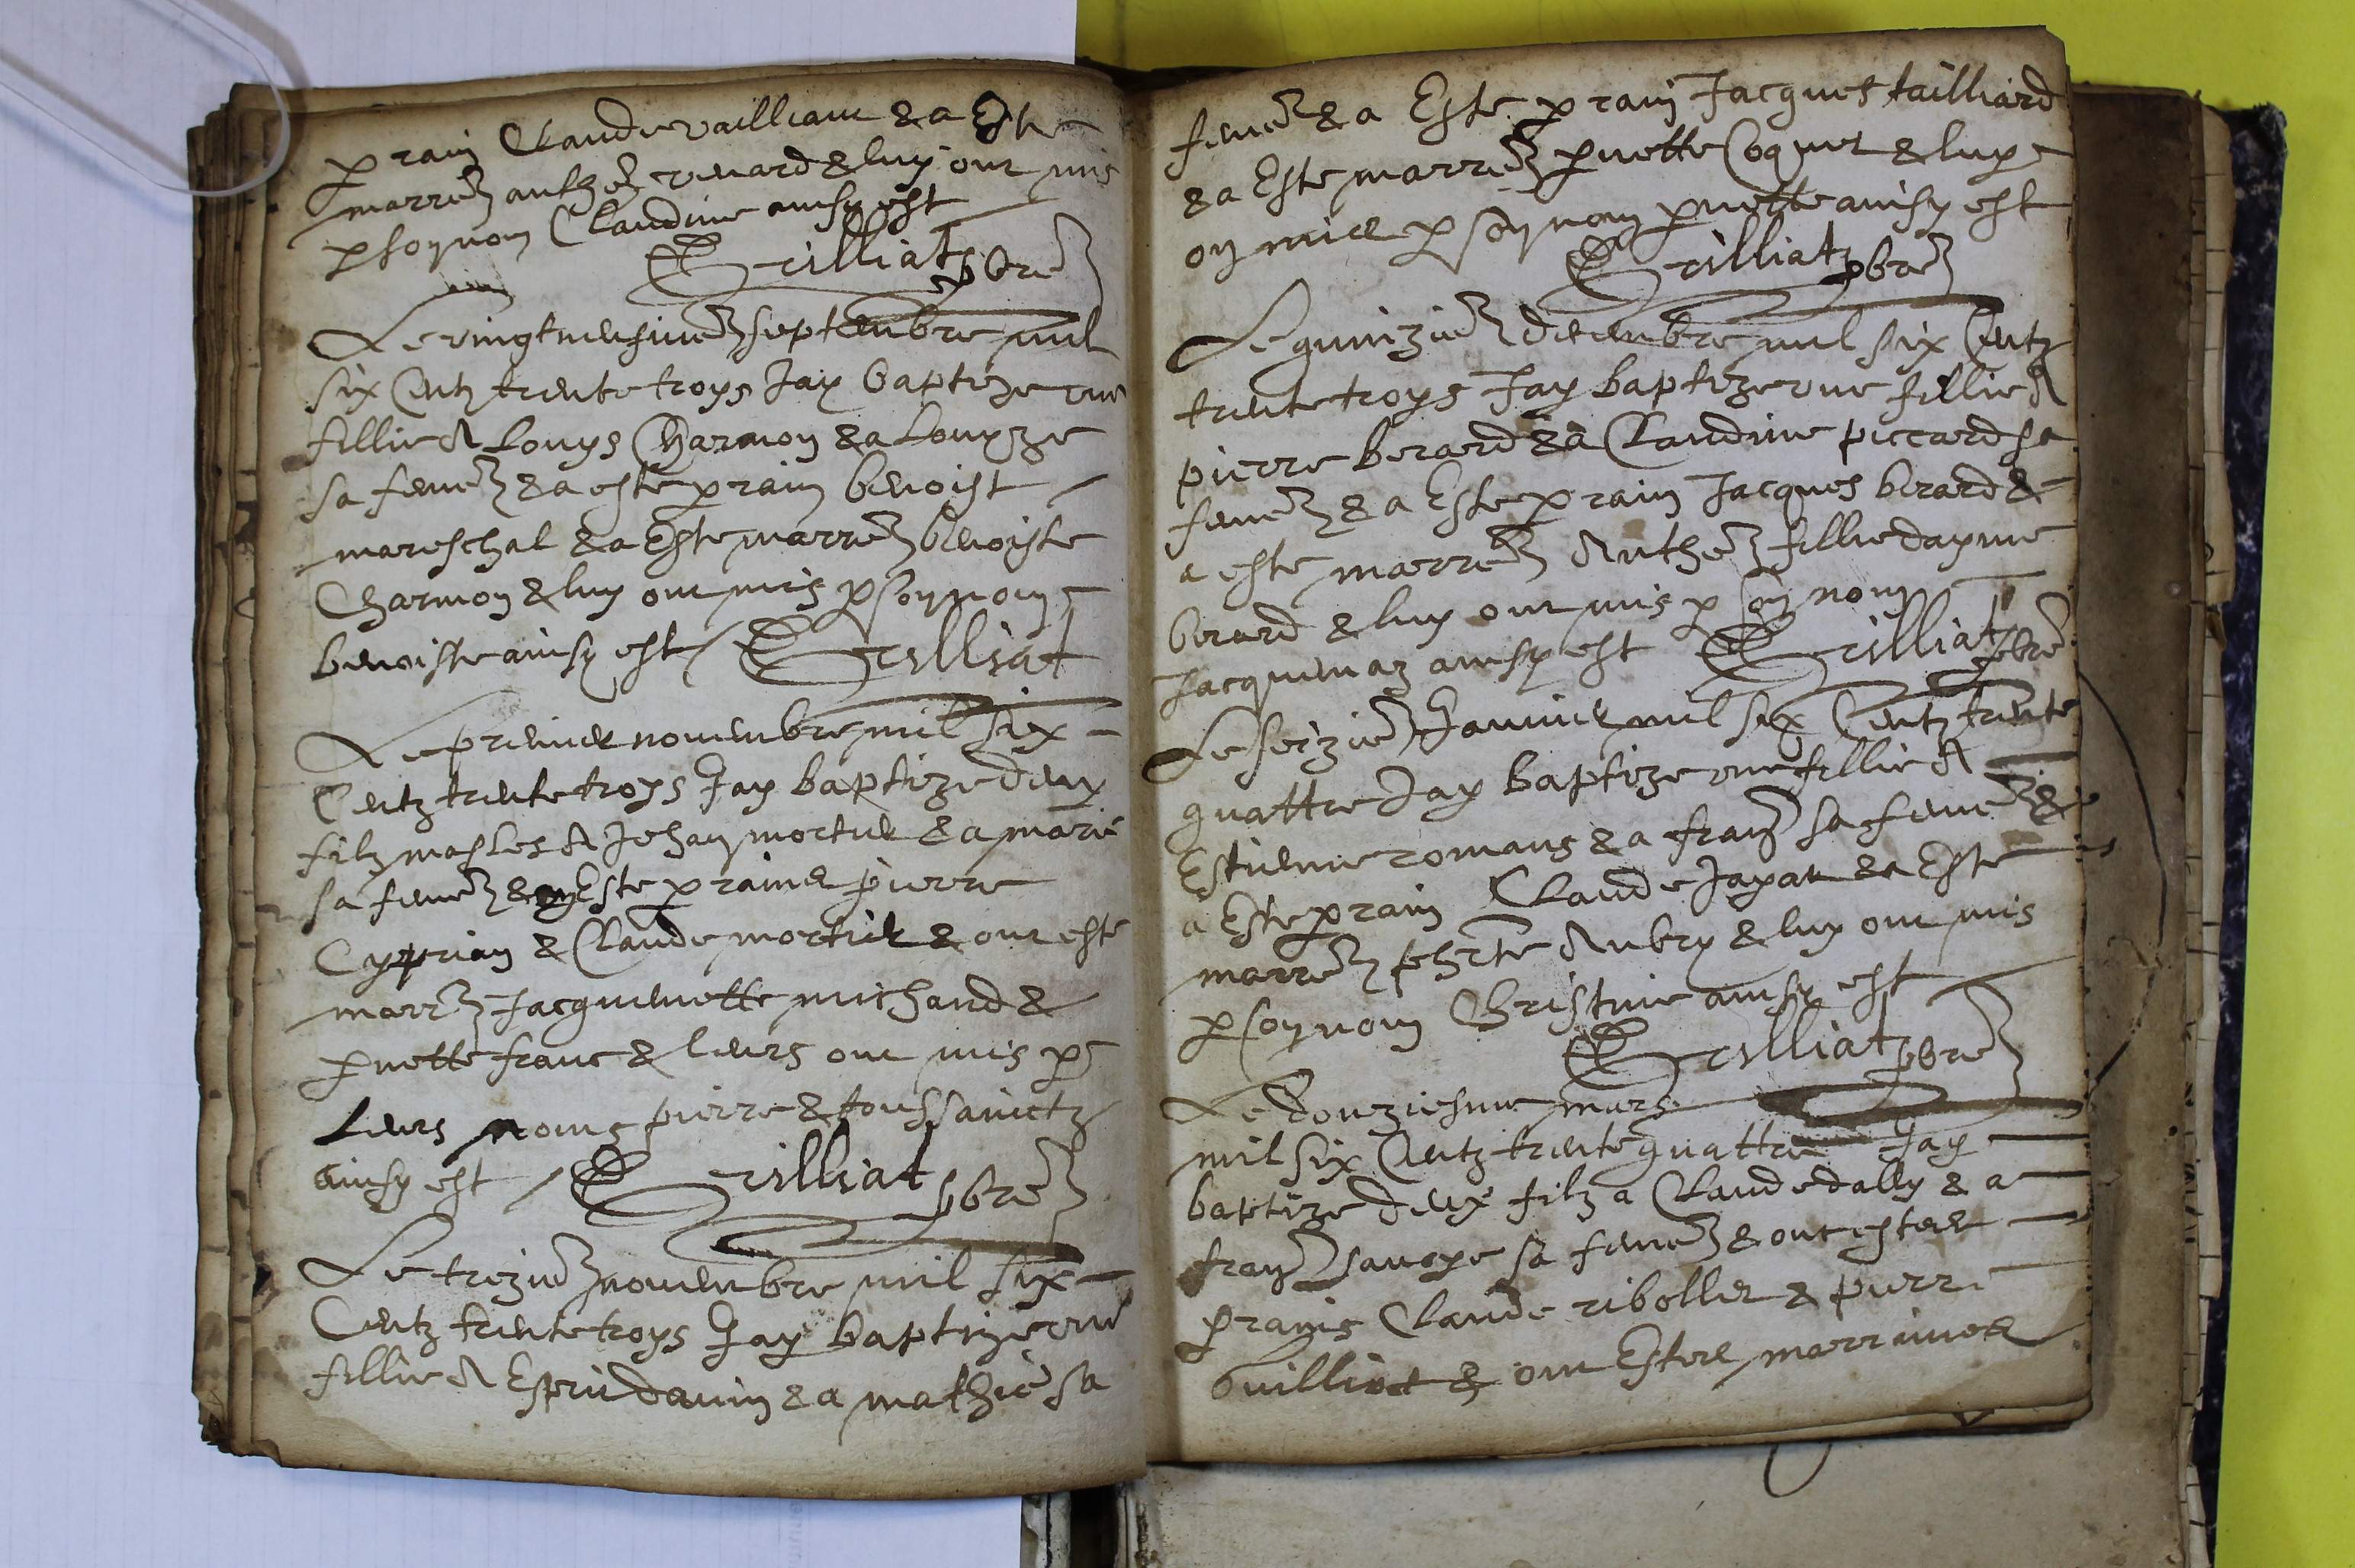 prain Claude vailliant & a Este
marre anthe renard & luy ont mis
p son nom Claudine ainsy est
Grilliat pbre
Le vingtneufsine septembre mil
six Centz trente troys Jay baptize une
fillie A Louys Charmon & a Louyze
sa feme & a este prain benoist
mareschal & a Este marre benoiste
Charmon & luy ont mis p son nom
benoiste ainsy est Grilliat
Le premier novembre mil six
Centz trente troys Jay baptize deux
filz masles A Jehan mortier & a marie
sa feme & Este praine pierre
Cyprian & Claude mortier & ont este
marre Jacquemette michaud &
pnette franc & leurs ont mis p
Leurs noms pierre & toussainctz
ainsy est Grilliat pbre
Le trezie novembre mil six
Centz trente troys Jay baptize une
fillie A Esprit davin & a mathie sa
feme & a Este prain Jacques tailliard
& a Este marre pnette Coquet & luy
on mict p son nom pnette ainsy est
Grilliat pbre
Le quinzie decembre mil six Centz
trente troys Jay baptize une fillie A
pierre berard & a Claudine piccard sa
feme & a Este prain Jacques berard &
a este marre Anthe fillie dayme
berard & luy ont mis p son nom
Jacquemaz ainsy est Grilliat pbre
Le seizie Janvier mil six Centz trente
quattre Jay baptize une fillie A
Estienne romans & a fran sa feme &
a Este prain Claude Jayat & a Este
marre Aubry & luy ont mis
p son nom Christine ainsy est
Grilliat pbre
Le douziesme mars
mil six Centz trente quattre Jay
baptize deux filz a Claude dally & a
fran savoye sa feme & ont estee
prains Claude ribollet & pierre
Guilliot & ont Estee marraines